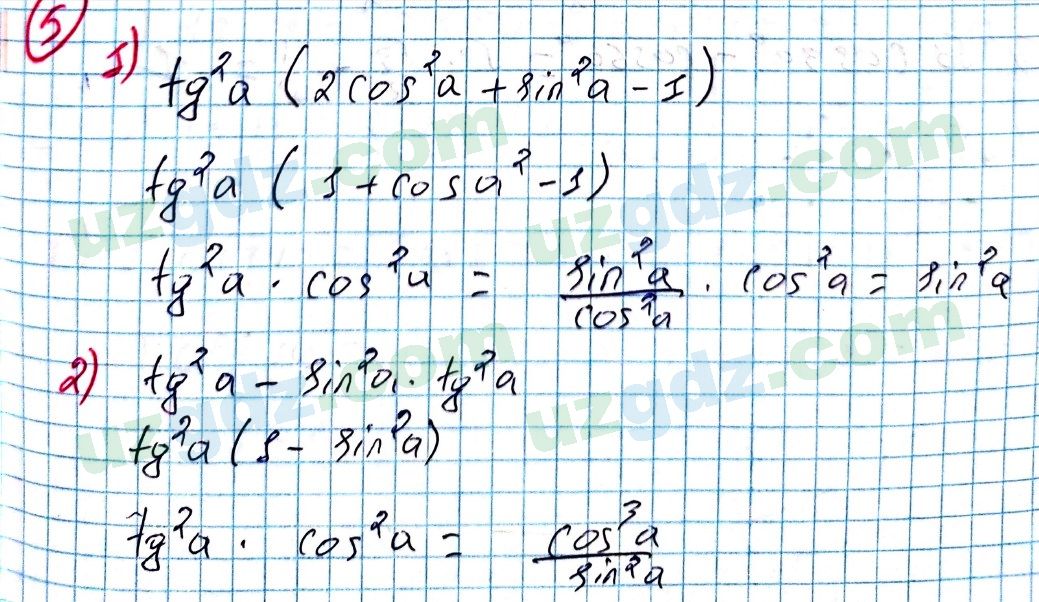 5
1) tg²a (2cos²a + sin²a - 1)
tg²a (1 + cos a² - 1)
tg²a · cos²a = sin²a/cos²a · cos²a = sin²a
2) tg²a - sin²a · tg²a
tg²a (1 - sin²a)
tg²a · cos²a = cos³a/sin²a
uzgdz.com
uzgdz.com
uzgdz.com
uzgdz.com